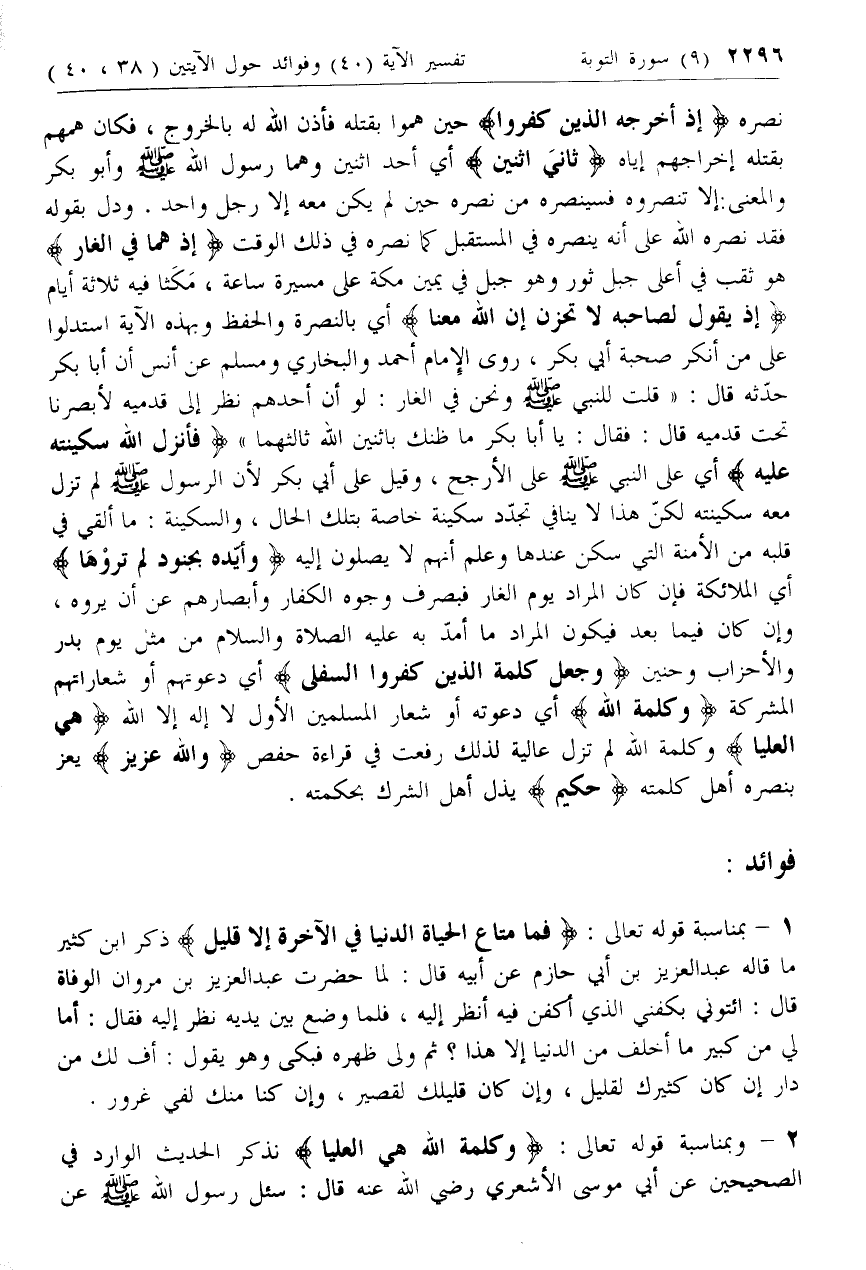 ٢٢٩٦ (٩) سورة التوبة تفسير الآية (٤٠) وفوائد حول الآيتين ( ٣٨ ، ٤٠ )
نصره ﴿ إذ أخرجه الذين كفروا﴾ حين هموا بقتله فأذن الله له بالخروج ، فكان همهم
بقتله إخراجهم إياه ﴿ ثانيَ اثنين ﴾ أي أحد اثنين وهما رسول الله ﷺ وأبو بكر
والمعنى:إلا تنصروه فسينصره من نصره حين لم يكن معه إلا رجل واحد . ودل بقوله
فقد نصره الله على أنه ينصره في المستقبل كما نصره في ذلك الوقت ﴿ إذ هما في الغار ﴾
هو ثقب في أعلى جبل ثور وهو جبل في يمين مكة على مسيرة ساعة ، مَكَثا فيه ثلاثة أيام
﴿ إذ يقول لصاحبه لا تحزن إن الله معنا ﴾ أي بالنصرة والحفظ وبهذه الآية استدلوا
على من أنكر صحبة أبي بكر ، روى الإمام أحمد والبخاري ومسلم عن أنس أن أبا بكر
حدّثه قال : « قلت للنبي ﷺ ونحن في الغار : لو أن أحدهم نظر إلى قدميه لأبصرنا
تحت قدميه قال : فقال : يا أبا بكر ما ظنك باثنين الله ثالثهما » ﴿ فأنزل الله سكينته
عليه ﴾ أي على النبي ﷺ على الأرجح ، وقيل على أبي بكر لأن الرسول ﷺ لم تزل
معه سكينته لكنّ هذا لا ينافي تجدّد سكينة خاصة بتلك الحال ، والسكينة : ما ألقي في
قلبه من الأمنة التي سكن عندها وعلم أنهم لا يصلون إليه ﴿ وأيّده بجنود لم تروْهَا ﴾
أي الملائكة فإن كان المراد يوم الغار فبصرف وجوه الكفار وأبصارهم عن أن يروه ،
وإن كان فيما بعد فيكون المراد ما أمدّ به عليه الصلاة والسلام من مثل يوم بدر
والأحزاب وحنين ﴿ وجعل كلمة الذين كفروا السفلى ﴾ أي دعوتهم أو شعاراتهم
المشركة ﴿ وكلمة الله ﴾ أي دعوته أو شعار المسلمين الأول لا إله إلا الله ﴿ هي
العليا ﴾ وكلمة الله لم تزل عالية لذلك رفعت في قراءة حفص ﴿ والله عزيز ﴾ يعز
بنصره أهل كلمته ﴿ حكيم ﴾ يذل أهل الشرك بحكمته .
فوائد :
١ – بمناسبة قوله تعالى : ﴿ فما متاع الحياة الدنيا في الآخرة إلا قليل ﴾ ذكر ابن كثير
ما قاله عبدالعزيز بن أبي حازم عن أبيه قال : لما حضرت عبدالعزيز بن مروان الوفاة
قال : ائتوني بكفني الذي أكفن فيه أنظر إليه ، فلما وضع بين يديه نظر إليه فقال : أما
لي من كبير ما أخلف من الدنيا إلا هذا ؟ ثم ولى ظهره فبكى وهو يقول : أف لك من
دار إن كان كثيرك لقليل ، وإن كان قليلك لقصير ، وإن كنا منك لفي غرور .
٢ – وبمناسبة قوله تعالى : ﴿ وكلمة الله هي العليا ﴾ نذكر الحديث الوارد في
الصحيحين عن أبي موسى الأشعري رضي الله عنه قال : سئل رسول الله ﷺ عن